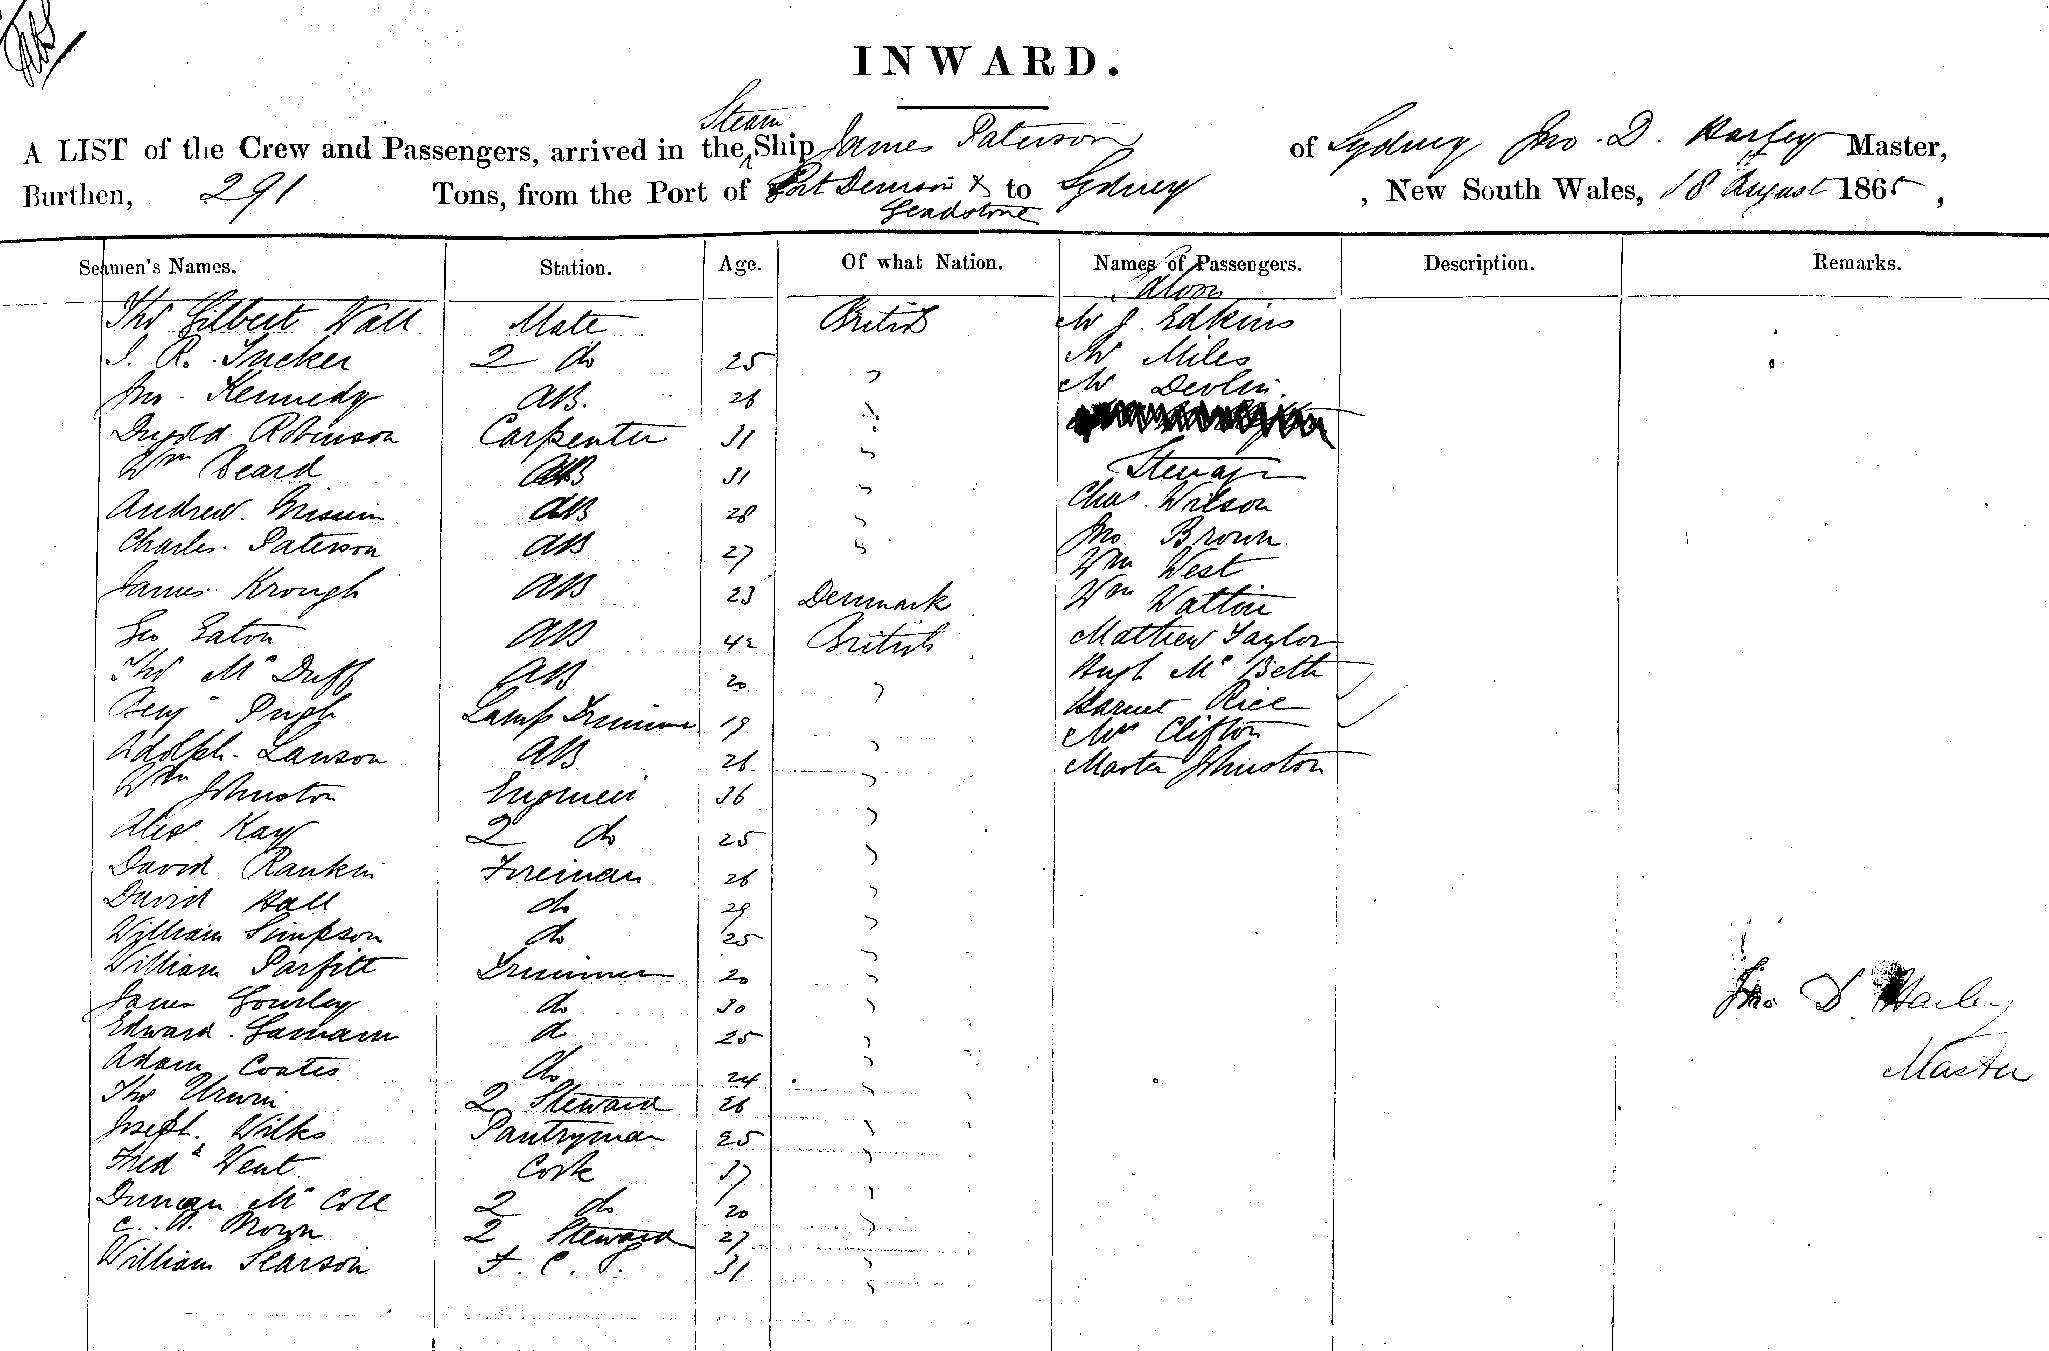 INWARD.
A LIST of the Crew and Passengers, arrived in the Steam Ship James Paterson of Sydney Jno. D. Harley Master,
Burthen, 291 Tons, from the Port of Port Denison & Gladstone to Sydney, New South Wales, 18 August 1865,
Seamen's Names. Station. Age. Of what Nation. Names of Passengers. Description. Remarks.
Saloon
Thos Gilbert Wall Mate British Mr J. Edkins
J. R. Tucker 2 do 25 " Mr Miles
Jno. Kennedy AB. 26 " Mr Devlin.
Robinson Carpenter 31 "
Wm Beard AB 31 " Steerage
Andrew AB 28 " Chas Wilson
Charles Paterson AB 27 " Jno Brown
Wm West
James Krough AB 23 Denmark Wm Watton
Geo Eaton AB 42 British Mathew Taylor
Thos Mc Duff AB 20 " Hugh Mc Beth
Benj Pugh Lamp Trimmer 19 " Harriet Rice
Mrs Clifton
Adolph. Lawson AB 26 " Master Johnston
Wm Johnston Engineer 36 "
Alexr Kay 2 do 25 "
David Rankin Fireman 26 "
David Hall do 29 "
William Simpson do 25 "
William Parfitt Trimmer 20 "
James Gourley do 30 "
Edward do 25 "
Adam Coates do 24 "
Thos Urwin 2 Steward 26 "
Joseph. Wilks Pantryman 25 "
Fredk Vent Cook 37 "
Duncan Mc Coll 2 do 20 "
C. Brown 2 Steward 27 "
William Searson F. C. S. 31 "
Jno D. Harley
Master